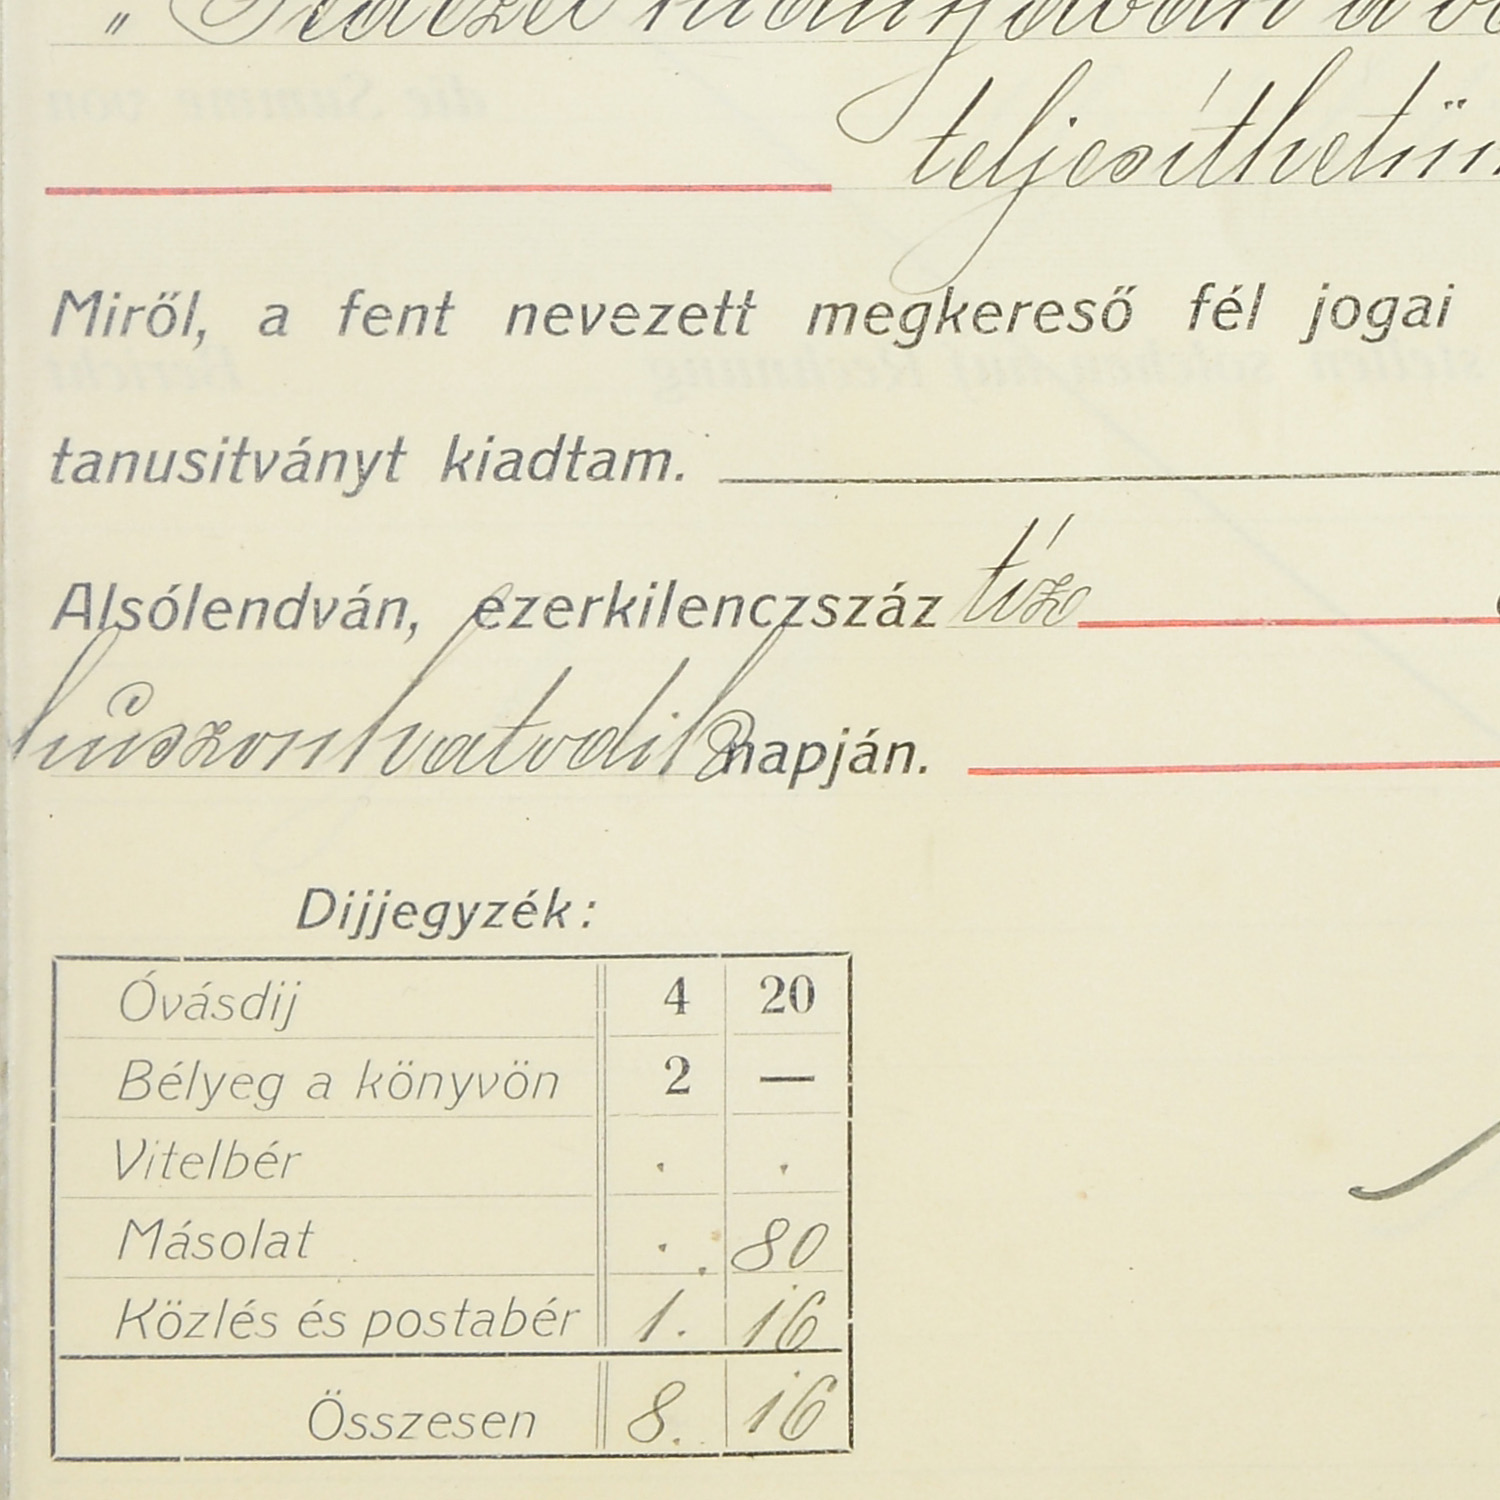 „Fedezet hiányában a
teljesíthetjü
Miről, a fent nevezett megkereső fél jogai
tanusitványt kiadtam.
Alsólendván, ezerkilenczszáz tíz
huszonhatodik napján.
Dijjegyzék:
Óvásdij 4 20
Bélyeg a könyvön 2 —
Vitelbér . .
Másolat . . 80
Közlés és postabér 1. 16
Összesen 8. 16